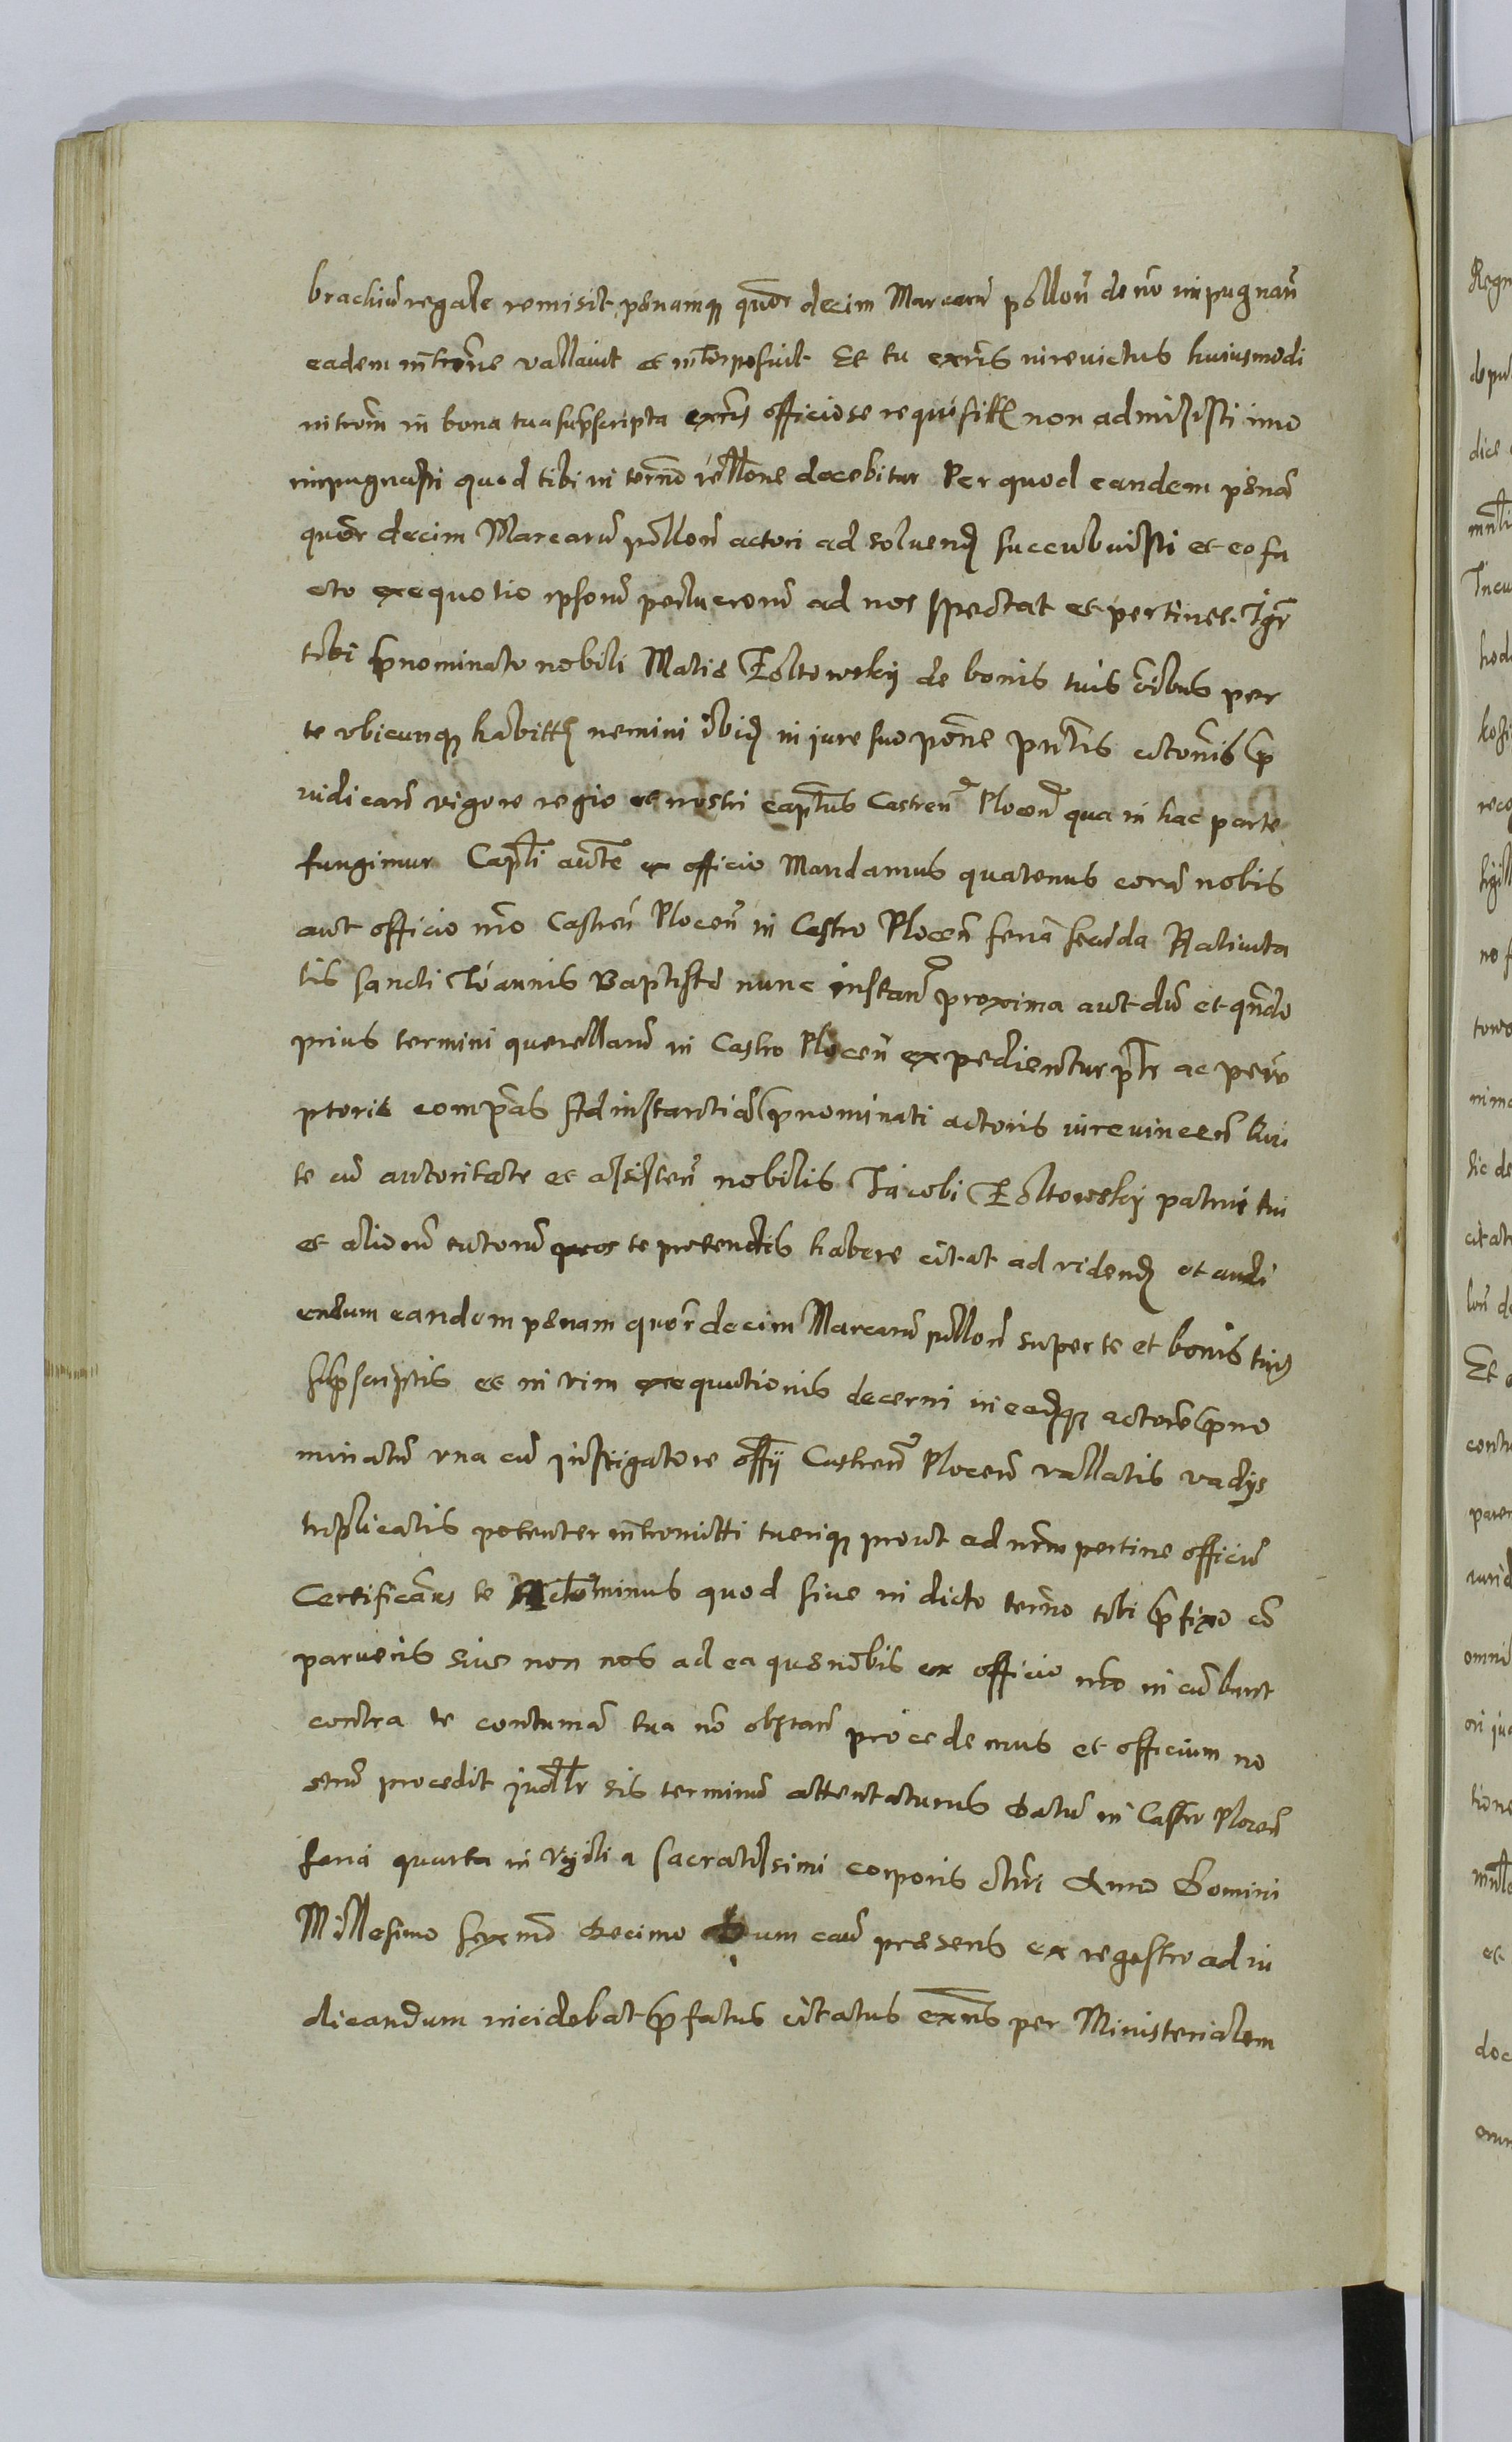 brachiũ regale remisit penamq̃ quor decim Marcarũ pollon̄ de n̄o impugnan̄
eadem intrōne vallavit et interposuit Et tu exn̄s iurevictus huiusmodi
intrōm in bona tua supscripta exn̄s officiose requisit non admisisti imo
impugnasti quod tibi in termō rellōne docebitur Per quod eandem penã
quor decim Marcarũ pollon̄ actori ad soluend succubuisti et eo fa
cto exequotio ipsorũ perlucrorũ ad nos spectat et pertinet. Igr̃
tibi p̃nominato nobili Matie Zoltowskij de bonis tuis oĩbus per
te vbicunq̃ habitt nemini ibid in jure suo pōne pn̄tis citonis p̃
iudicañ vigore regio et nostri captus Castren̄ Plocen̄ qua in hac parte
fungimur Captl̃i aut̃e ex officio Mandamus quatenus corã nobis
aut officio nr̃o Castren̄ Plocen̄ in Castro Plocen̄ feria secũda Natiuita
tis sancti Joannis Baptiste nunc instan̄ proxima aut dũ et qn̄do
prius termini querellarũ in Castro Plocen̄ expedientur pltr ac perẽ
ptorie compãs Ad instantiã p̃nominati actoris iurevincen̄ qui
te cũ autoritate et assisten̄ nobilis Jacobi Zoltowskij patrui tui
et aliorũ tutorũ quos te pretendis habere citat ad videnđ et audi
endum eandem penam quor decim Marcarũ pollon̄ super te et bonis tuis
supscriptis et in vim exequutionis decerni in eadq̃ actorẽ p̃no
minatũ vna cũ instigatore offij Castren̄ Plocen̄ vallatis vadijs
triplicatis potenter intromitti tueriq̃ prout ad nr̃m pertine officiũ
Certificãns te Actominus quod siue in dicto termo tibi p̃fixo cõ
parueris siue non nos ad ea que nobis ex officio nr̃o incũbunt
contra te contumã tua nō obstañ procedemus et officium no
strũ procedit judltr sis terminũ attentaturus Datũ in Castro Plocen̄
feria quarta in Vigili a sacratissimi corporis chri Anno Domini
Millesimo sexmō decimo Dum caũ presens ex regestro ad iu
dicandum incidebat p̃fatus citatus exn̄s per Ministerialem